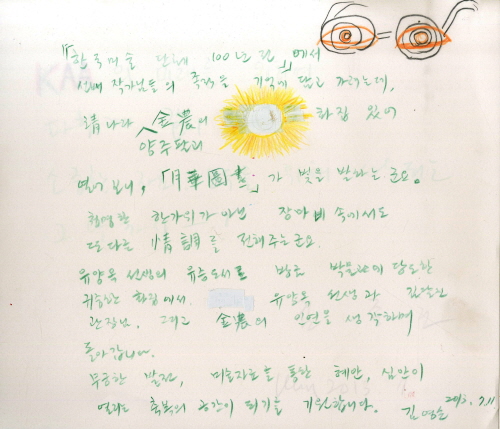 「한국미술 단체 100년전」에서
선배 작가님들의 흔적을 기억에 담고 가려는데,
淸나라 金農의 화집 있어
양주팔괴
열어 보니, 「月華圖畫」가 빛을 발하는군요.
휘영한 한가위가 아닌 장마비 속에서도
또다른 情調를 전해주는군요.
유양옥 선생의 유증도서로 방금 박물관에 당도한
귀중한 화집에서. 유양옥 선생과 김달진
관장님, 그리고 金農의 인연을 생각하며
돌아갑니다.
무궁한 발전, 미술자료를 통한 혜안, 심안이
열리는 축복의 공간이 되기를 기원합니다. 김영순 2013. 7. 11